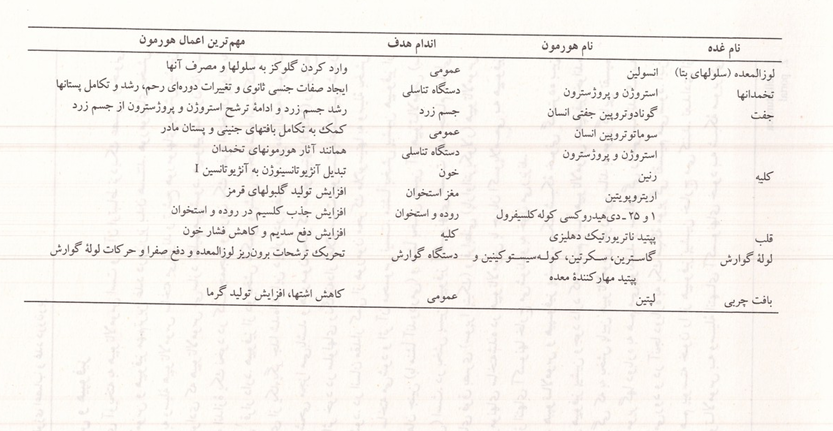 نام غده نام هورمون اندام هدف مهم‌ترین اعمال هورمون
لوزالمعده (سلولهای بتا) انسولین عمومی وارد کردن گلوکز به سلولها و مصرف آنها
تخمدانها استروژن و پروژسترون دستگاه تناسلی ایجاد صفات جنسی ثانوی و تغییرات دوره‌ای رحم، رشد و تکامل پستانها
جفت گونادوتروپین جفتی انسان جسم زرد رشد جسم زرد و ادامهٔ ترشح استروژن و پروژسترون از جسم زرد
سوماتوتروپین انسان عمومی کمک به تکامل بافتهای جنینی و پستان مادر
استروژن و پروژسترون دستگاه تناسلی همانند آثار هورمونهای تخمدان
کلیه رنین خون تبدیل آنژیوتانسینوژن به آنژیوتانسین I
اریتروپویتین مغز استخوان افزایش تولید گلبولهای قرمز
۱ و ۲۵ ـ دی‌هیدروکسی کوله‌کلسیفرول روده و استخوان افزایش جذب کلسیم در روده و استخوان
قلب پپتید ناتریورتیک دهلیزی کلیه افزایش دفع سدیم و کاهش فشار خون
لولهٔ گوارش گاسترین، سکرتین، کوله‌سیستوکینین و دستگاه گوارش تحریک ترشحات برون‌ریز لوزالمعده و دفع صفرا و حرکات لولهٔ گوارش
پپتید مهارکنندهٔ معده
بافت چربی لپتین عمومی کاهش اشتها، افزایش تولید گرما